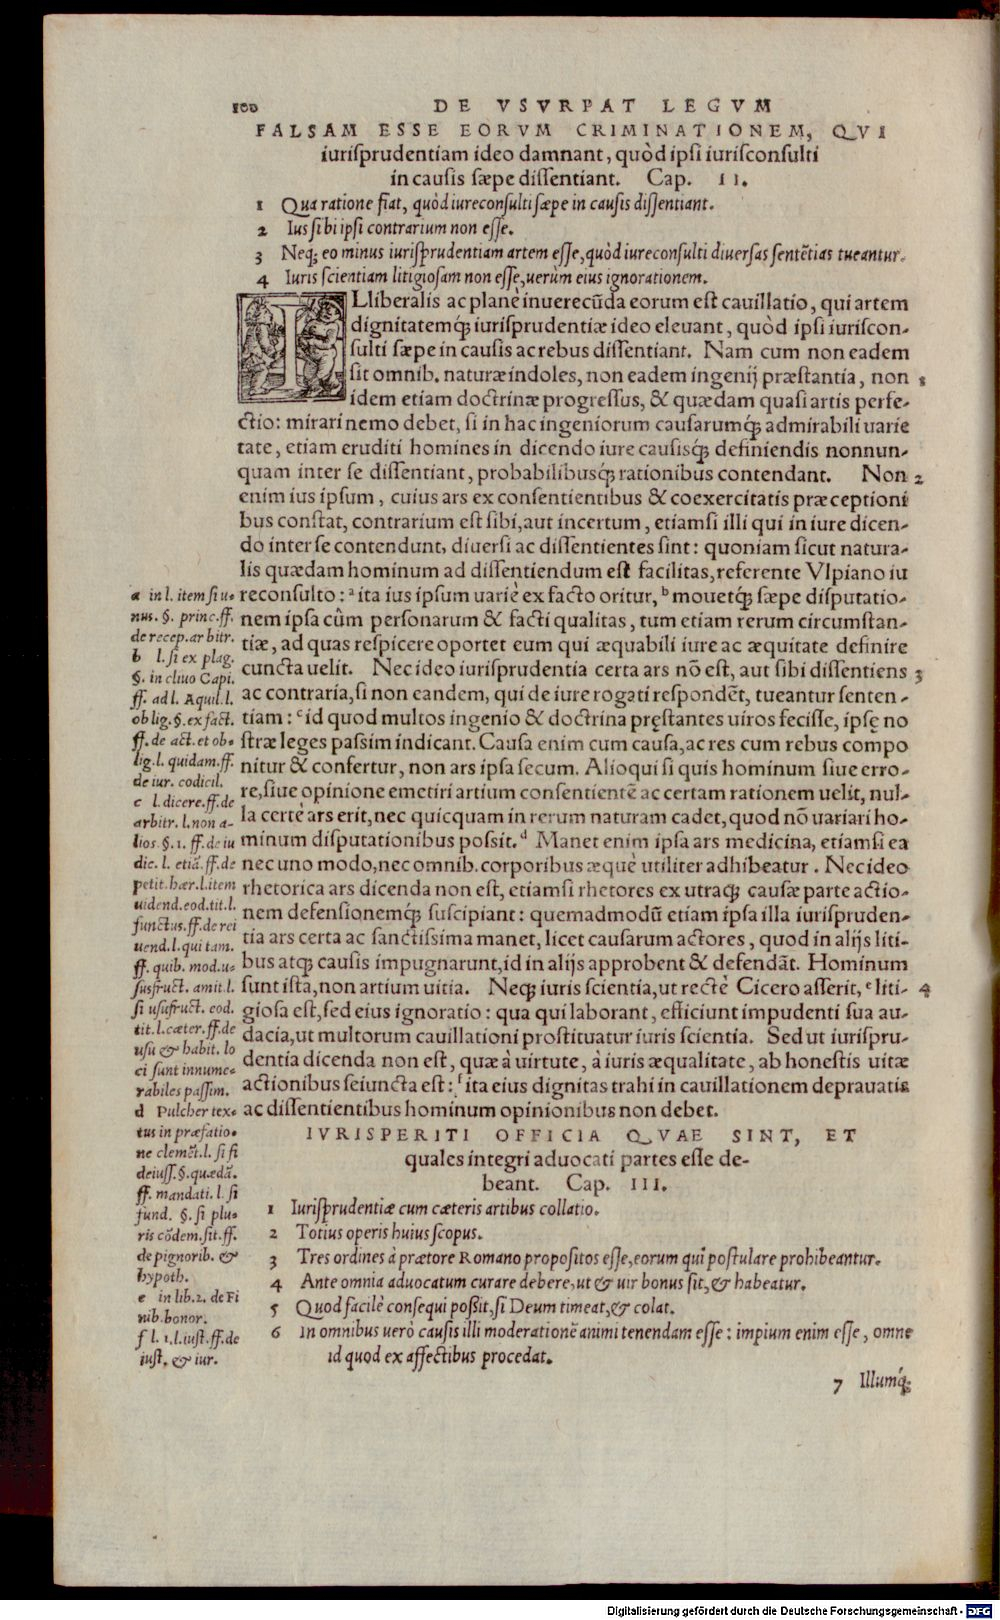 100 DE VSVRPAT LEGVM
FALSAM ESSE EORVM CRIMINATIONEM, QVI
iurisprudentiam ideo damnant, quòd ipsi iurisconsulti
in causis sæpe dissentiant. Cap. II.
1 Qua ratione fiat, quòd iureconsulti sæpe in causis dissentiant.
2 Ius sibi ipsi contrarium non esse.
3 Neq; eo minus iurisprudentiam artem esse, quòd iureconsulti diuersas sentẽtias tueantur.
4 Iuris scientiam litigiosam non esse, uerùm eius ignorationem.
ILliberalis ac planè inuerecũda eorum est cauillatio, qui artem
dignitatemq́; iurisprudentiæ ideo eleuant, quòd ipsi iuriscon-
sulti sæpe in causis ac rebus dissentiant. Nam cum non eadem
sit omnib. naturæ indoles, non eadem ingenij præstantia, non 1
idem etiam doctrinæ progressus, & quædam quasi artis perfe-
ctio: mirari nemo debet, si in hac ingeniorum causarumq́; admirabili uarie
tate, etiam eruditi homines in dicendo iure causisq́; definiendis nonnun-
quam inter se dissentiant, probabilibusq́; rationibus contendant. Non 2
enim ius ipsum, cuius ars ex consentientibus & coexercitatis præceptioni
bus constat, contrarium est sibi, aut incertum, etiamsi illi qui in iure dicen-
do inter se contendunt, diuersi ac dissentientes sint: quoniam sicut natura-
lis quædam hominum ad dissentiendum est facilitas, referente Vlpiano iu
reconsulto: a ita ius ipsum uariè ex facto oritur, b mouetq́; sæpe disputatio-
nem ipsa cûm personarum & facti qualitas, tum etiam rerum circumstan-
tiæ, ad quas respicere oportet eum qui æquabili iure ac æquitate definire
cuncta uelit. Nec ideo iurisprudentia certa ars nõ est, aut sibi dissentiens 3
ac contraria, si non eandem, qui de iure rogati respondẽt, tueantur senten-
tiam: c id quod multos ingenio & doctrina pręstantes uiros fecisse, ipsę no
stræ leges passim indicant. Causa enim cum causa, ac res cum rebus compo
nitur & confertur, non ars ipsa secum. Alioqui si quis hominum siue erro-
re, siue opinione emetiri artium consentientẽ ac certam rationem uelit, nul-
la certè ars erit, nec quicquam in rerum naturam cadet, quod nõ uariari ho-
minum disputationibus possit. d Manet enim ipsa ars medicina, etiamsi ea
nec uno modo, nec omnib. corporibus æquè utiliter adhibeatur. Nec ideo
rhetorica ars dicenda non est, etiamsi rhetores ex utraq; causæ parte actio-
nem defensionemq́; suscipiant: quemadmodũ etiam ipsa illa iurispruden-
tia ars certa ac sanctissima manet, licet causarum actores, quod in alijs liti-
bus atq; causis impugnarunt, id in alijs approbent & defendãt. Hominum
sunt ista, non artium uitia. Neq; iuris scientia, ut rectè Cicero asserit, e liti- 4
giosa est, sed eius ignoratio: qua qui laborant, efficiunt impudenti sua au-
dacia, ut multorum cauillationi prostituatur iuris scientia. Sed ut iurispru-
dentia dicenda non est, quæ à uirtute, à iuris æqualitate, ab honestis uitæ
actionibus seiuncta est: f ita eius dignitas trahi in cauillationem deprauatis
ac dissentientibus hominum opinionibus non debet.
a in l. item si u-
nus. §. princ. ff.
de recep. arbitr.
b l. si ex plag.
§. in cliuo Capi.
ff. ad l. Aquil. l.
oblig. §. ex fact.
ff. de act. et ob-
lig. l. quidam. ff.
de iur. codicil.
c l. dicere. ff. de
arbitr. l. non a-
lios. §. 1. ff. de iu
dic. l. etiã. ff. de
petit. hær. l. item
uidend. eod. tit. l.
functus. ff. de rei
uend. l. qui tam.
ff. quib. mod. u-
susfruct. amit. l.
si usufruct. eod.
tit. l. cæter. ff. de
usu & habit. lo
ci sunt innume-
rabiles passim.
d Pulcher tex-
tus in præfatio-
ne clemẽt. l. si fi
deiuss. §. quædã.
ff. mandati. l. si
fund. §. si plu-
ris cõdem. sit. ff.
de pignorib. &
hypoth.
e in lib. 2. de Fi
nib. bonor.
f l. 1. l. iust. ff. de
iust. & iur.
IVRISPERITI OFFICIA QVAE SINT, ET
quales integri aduocati partes esse de-
beant. Cap. III.
1 Iurisprudentiæ cum cæteris artibus collatio.
2 Totius operis huius scopus.
3 Tres ordines à prætore Romano propositos esse, eorum qui postulare prohibeantur.
4 Ante omnia aduocatum curare debere, ut & uir bonus sit, & habeatur.
5 Quod facilè consequi poßit, si Deum timeat, & colat.
6 In omnibus uerò causis illi moderationẽ animi tenendam esse: impium enim esse, omne
id quod ex affectibus procedat.
7 Illumq́;
Digitalisierung gefördert durch die Deutsche Forschungsgemeinschaft - DFG